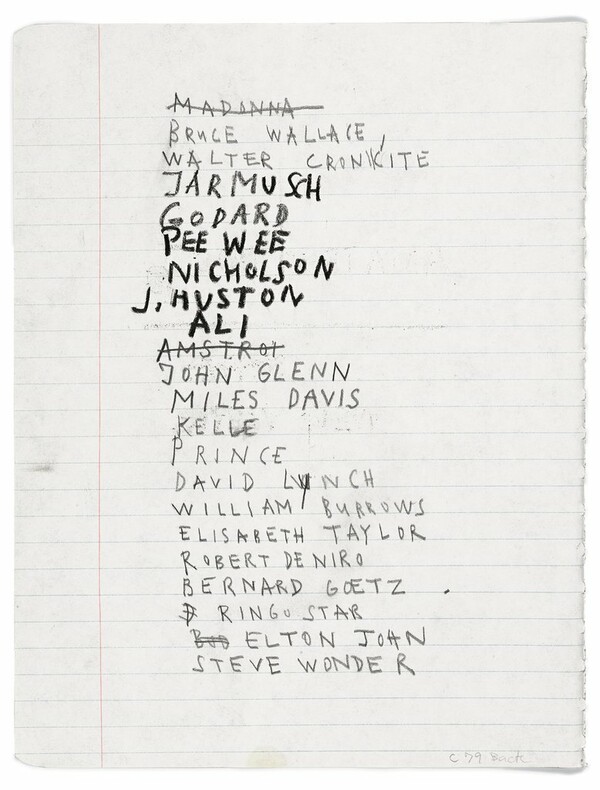 MADONNA
BRUCE WALLACE,
WALTER CRONKITE
JARMUSCH
GODARD
PEE WEE
NICHOLSON
J. HUSTON
ALI
AMSTROI
JOHN GLENN
MILES DAVIS
KELLE
PRINCE
DAVID LYNCH
WILLIAM BURROWS
ELISABETH TAYLOR
ROBERT DENIRO
BERNARD GOETZ .
RINGO STAR
BOB ELTON JOHN
STEVE WONDER
C79 Back